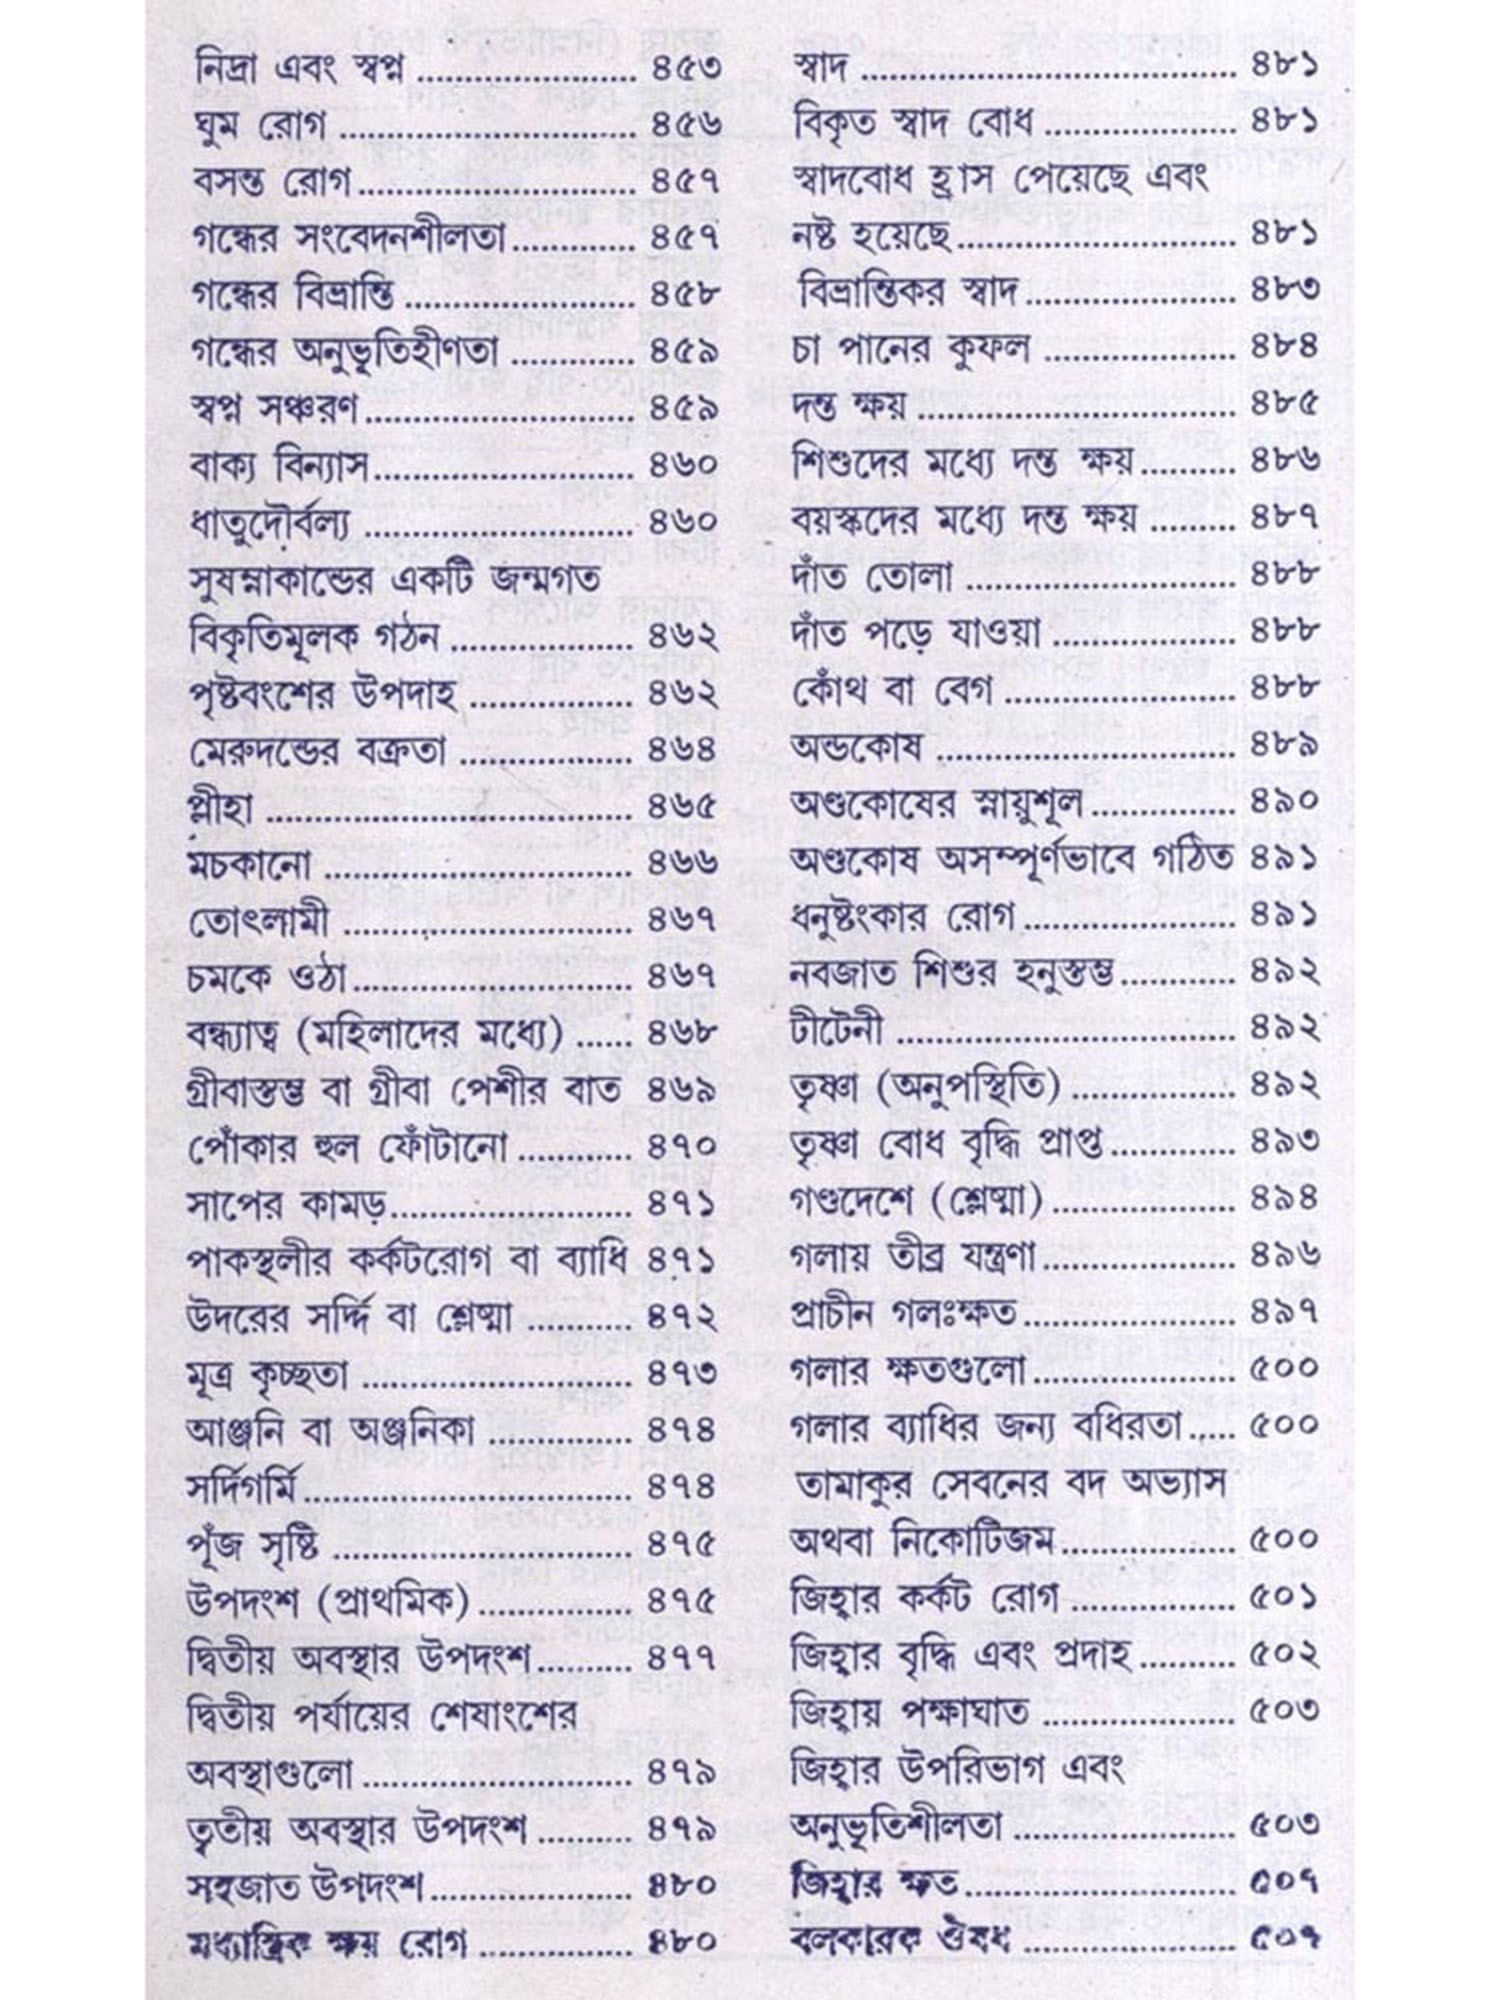 নিদ্রা এবং স্বপ্ন ...................... ৪৫৩
ঘুম রোগ .............................. ৪৫৬
বসন্ত রোগ............................ ৪৫৭
গন্ধের সংবেদনশীলতা............. ৪৫৭
গন্ধের বিভ্রান্তি ....................... ৪৫৮
গন্ধের অনুভূতিহীণতা ............. ৪৫৯
স্বপ্ন সঞ্চরণ........................... ৪৫৯
বাক্য বিন্যাস.......................... ৪৬০
ধাতুদৌর্বল্য ........................... ৪৬০
সুষম্নাকান্ডের একটি জন্মগত
বিকৃতিমূলক গঠন ................... ৪৬২
পৃষ্টবংশের উপদাহ ................. ৪৬২
মেরুদন্ডের বক্রতা .................. ৪৬৪
প্লীহা ..................................... ৪৬৫
মচকানো ............................... ৪৬৬
তোৎলামী ............................. ৪৬৭
চমকে ওঠা............................ ৪৬৭
বন্ধ্যাত্ব (মহিলাদের মধ্যে) ...... ৪৬৮
গ্রীবাস্তম্ভ বা গ্রীবা পেশীর বাত ৪৬৯
পোঁকার হুল ফোঁটানো ............ ৪৭০
সাপের কামড়......................... ৪৭১
পাকস্থলীর কর্কটরোগ বা ব্যাধি ৪৭১
উদরের সর্দ্দি বা শ্লেষ্মা ........... ৪৭২
মূত্র কৃচ্ছতা ........................... ৪৭৩
আঞ্জনি বা অঞ্জনিকা ............... ৪৭৪
সর্দিগর্মি................................. ৪৭৪
পূঁজ সৃষ্টি .............................. ৪৭৫
উপদংশ (প্রাথমিক)................ ৪৭৫
দ্বিতীয় অবস্থার উপদংশ.......... ৪৭৭
দ্বিতীয় পর্যায়ের শেষাংশের
অবস্থাগুলো ........................... ৪৭৯
তৃতীয় অবস্থার উপদংশ .......... ৪৭৯
সহজাত উপদংশ.................... ৪৮০
মধ্যান্ত্রিক ক্ষয় রোগ ................ ৪৮০
স্বাদ ...................................... ৪৮১
বিকৃত স্বাদ বোধ ................... ৪৮১
স্বাদবোধ হ্রাস পেয়েছে এবং
নষ্ট হয়েছে............................ ৪৮১
বিভ্রান্তিকর স্বাদ..................... ৪৮৩
চা পানের কুফল ................... ৪৮৪
দন্ত ক্ষয় ................................ ৪৮৫
শিশুদের মধ্যে দন্ত ক্ষয়.......... ৪৮৬
বয়স্কদের মধ্যে দন্ত ক্ষয় ......... ৪৮৭
দাঁত তোলা ........................... ৪৮৮
দাঁত পড়ে যাওয়া .................. ৪৮৮
কোঁথ বা বেগ ....................... ৪৮৮
অন্ডকোষ .............................. ৪৮৯
অণ্ডকোষের স্নায়ুশূল............... ৪৯০
অণ্ডকোষ অসম্পূর্ণভাবে গঠিত ৪৯১
ধনুষ্টংকার রোগ..................... ৪৯১
নবজাত শিশুর হনুস্তম্ভ............ ৪৯২
টীটেনী .................................. ৪৯২
তৃষ্ণা (অনুপস্থিতি) ................ ৪৯২
তৃষ্ণা বোধ বৃদ্ধি প্রাপ্ত............. ৪৯৩
গণ্ডদেশে (শ্লেষ্মা)................... ৪৯৪
গলায় তীব্র যন্ত্রণা.................... ৪৯৬
প্রাচীন গলঃক্ষত..................... ৪৯৭
গলার ক্ষতগুলো .................... ৫০০
গলার ব্যাধির জন্য বধিরতা..... ৫০০
তামাকুর সেবনের বদ অভ্যাস
অথবা নিকোটিজম.................. ৫০০
জিহ্বার কর্কট রোগ ................ ৫০১
জিহ্বার বৃদ্ধি এবং প্রদাহ .......... ৫০২
জিহ্বায় পক্ষাঘাত ................... ৫০৩
জিহ্বার উপরিভাগ এবং
অনুভূতিশীলতা ...................... ৫০৩
জিহ্বার ক্ষত........................... ৫০৭
বলকারক ঔষধ ..................... ৫০৭